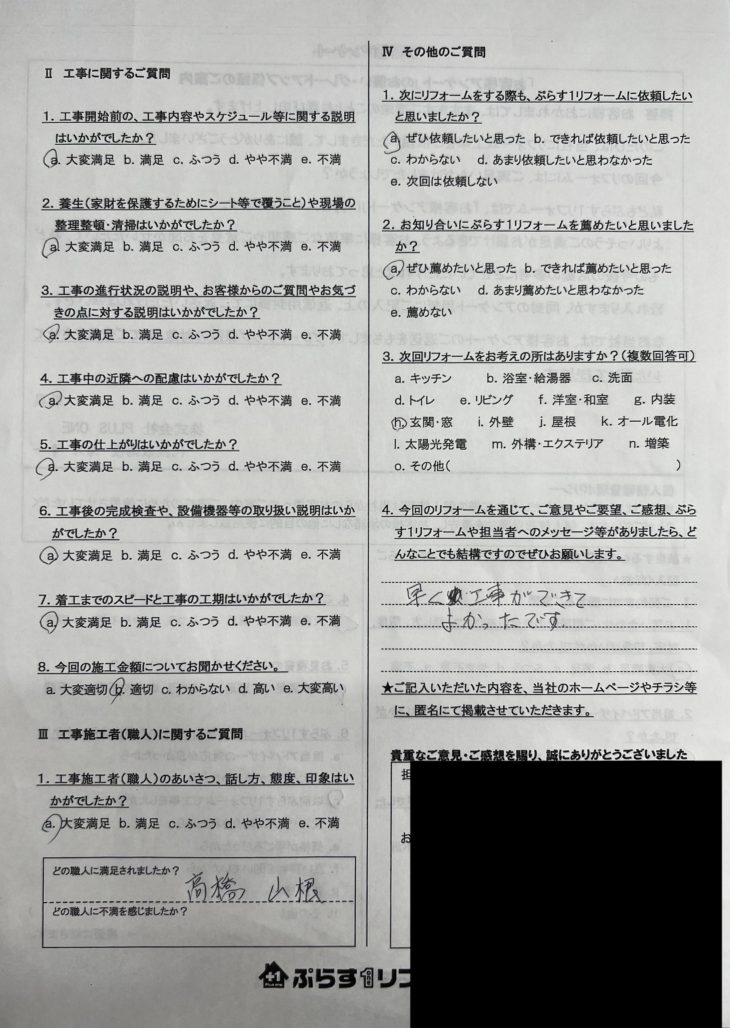 Ⅱ 工事に関するご質問
1. 工事開始前の、工事内容やスケジュール等に関する説明
はいかがでしたか？
a. 大変満足 b. 満足 c. ふつう d. やや不満 e. 不満
2. 養生(家財を保護するためにシート等で覆うこと)や現場の
整理整頓・清掃はいかがでしたか？
a. 大変満足 b. 満足 c. ふつう d. やや不満 e. 不満
3. 工事の進行状況の説明や、お客様からのご質問やお気づ
きの点に対する説明はいかがでしたか？
a. 大変満足 b. 満足 c. ふつう d. やや不満 e. 不満
4. 工事中の近隣への配慮はいかがでしたか？
a. 大変満足 b. 満足 c. ふつう d. やや不満 e. 不満
5. 工事の仕上がりはいかがでしたか？
a. 大変満足 b. 満足 c. ふつう d. やや不満 e. 不満
6. 工事後の完成検査や、設備機器等の取り扱い説明はいか
がでしたか？
a. 大変満足 b. 満足 c. ふつう d. やや不満 e. 不満
7. 着工までのスピードと工事の工期はいかがでしたか？
a. 大変満足 b. 満足 c. ふつう d. やや不満 e. 不満
8. 今回の施工金額についてお聞かせください。
a. 大変適切 b. 適切 c. わからない d. 高い e. 大変高い
Ⅲ 工事施工者(職人)に関するご質問
1. 工事施工者(職人)のあいさつ、話し方、態度、印象はい
かがでしたか？
a. 大変満足 b. 満足 c. ふつう d. やや不満 e. 不満
どの職人に満足されましたか？
高橋 山根
どの職人に不満を感じましたか？
Ⅳ その他のご質問
1. 次にリフォームをする際も、ぷらす1リフォームに依頼したい
と思いましたか？
a. ぜひ依頼したいと思った b. できれば依頼したいと思った
c. わからない d. あまり依頼したいと思わなかった
e. 次回は依頼しない
2. お知り合いにぷらす1リフォームを薦めたいと思いました
か？
a. ぜひ薦めたいと思った b. できれば薦めたいと思った
c. わからない d. あまり薦めたいと思わなかった
e. 薦めない
3. 次回リフォームをお考えの所はありますか？(複数回答可)
a. キッチン b. 浴室・給湯器 c. 洗面
d. トイレ e. リビング f. 洋室・和室 g. 内装
h. 玄関・窓 i. 外壁 j. 屋根 k. オール電化
l. 太陽光発電 m. 外構・エクステリア n. 増築
o. その他( )
4. 今回のリフォームを通じて、ご意見やご要望、ご感想、ぷら
す1リフォームや担当者へのメッセージ等がありましたら、ど
んなことでも結構ですのでぜひお願いします。
早く工事ができて
よかったです
★ご記入いただいた内容を、当社のホームページやチラシ等
に、匿名にて掲載させていただきます。
貴重なご意見・ご感想を賜り、誠にありがとうございました
担
お
+1 ぷらす1リフ